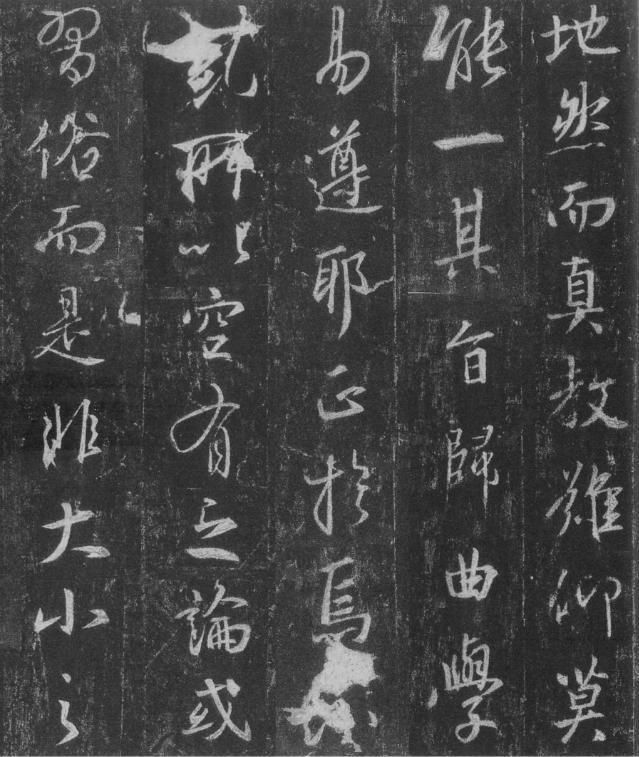 地然而真教難仰莫
能一其旨歸曲學
易遵耶正於焉
紛糺所以空有之論或
習俗而是非大小之